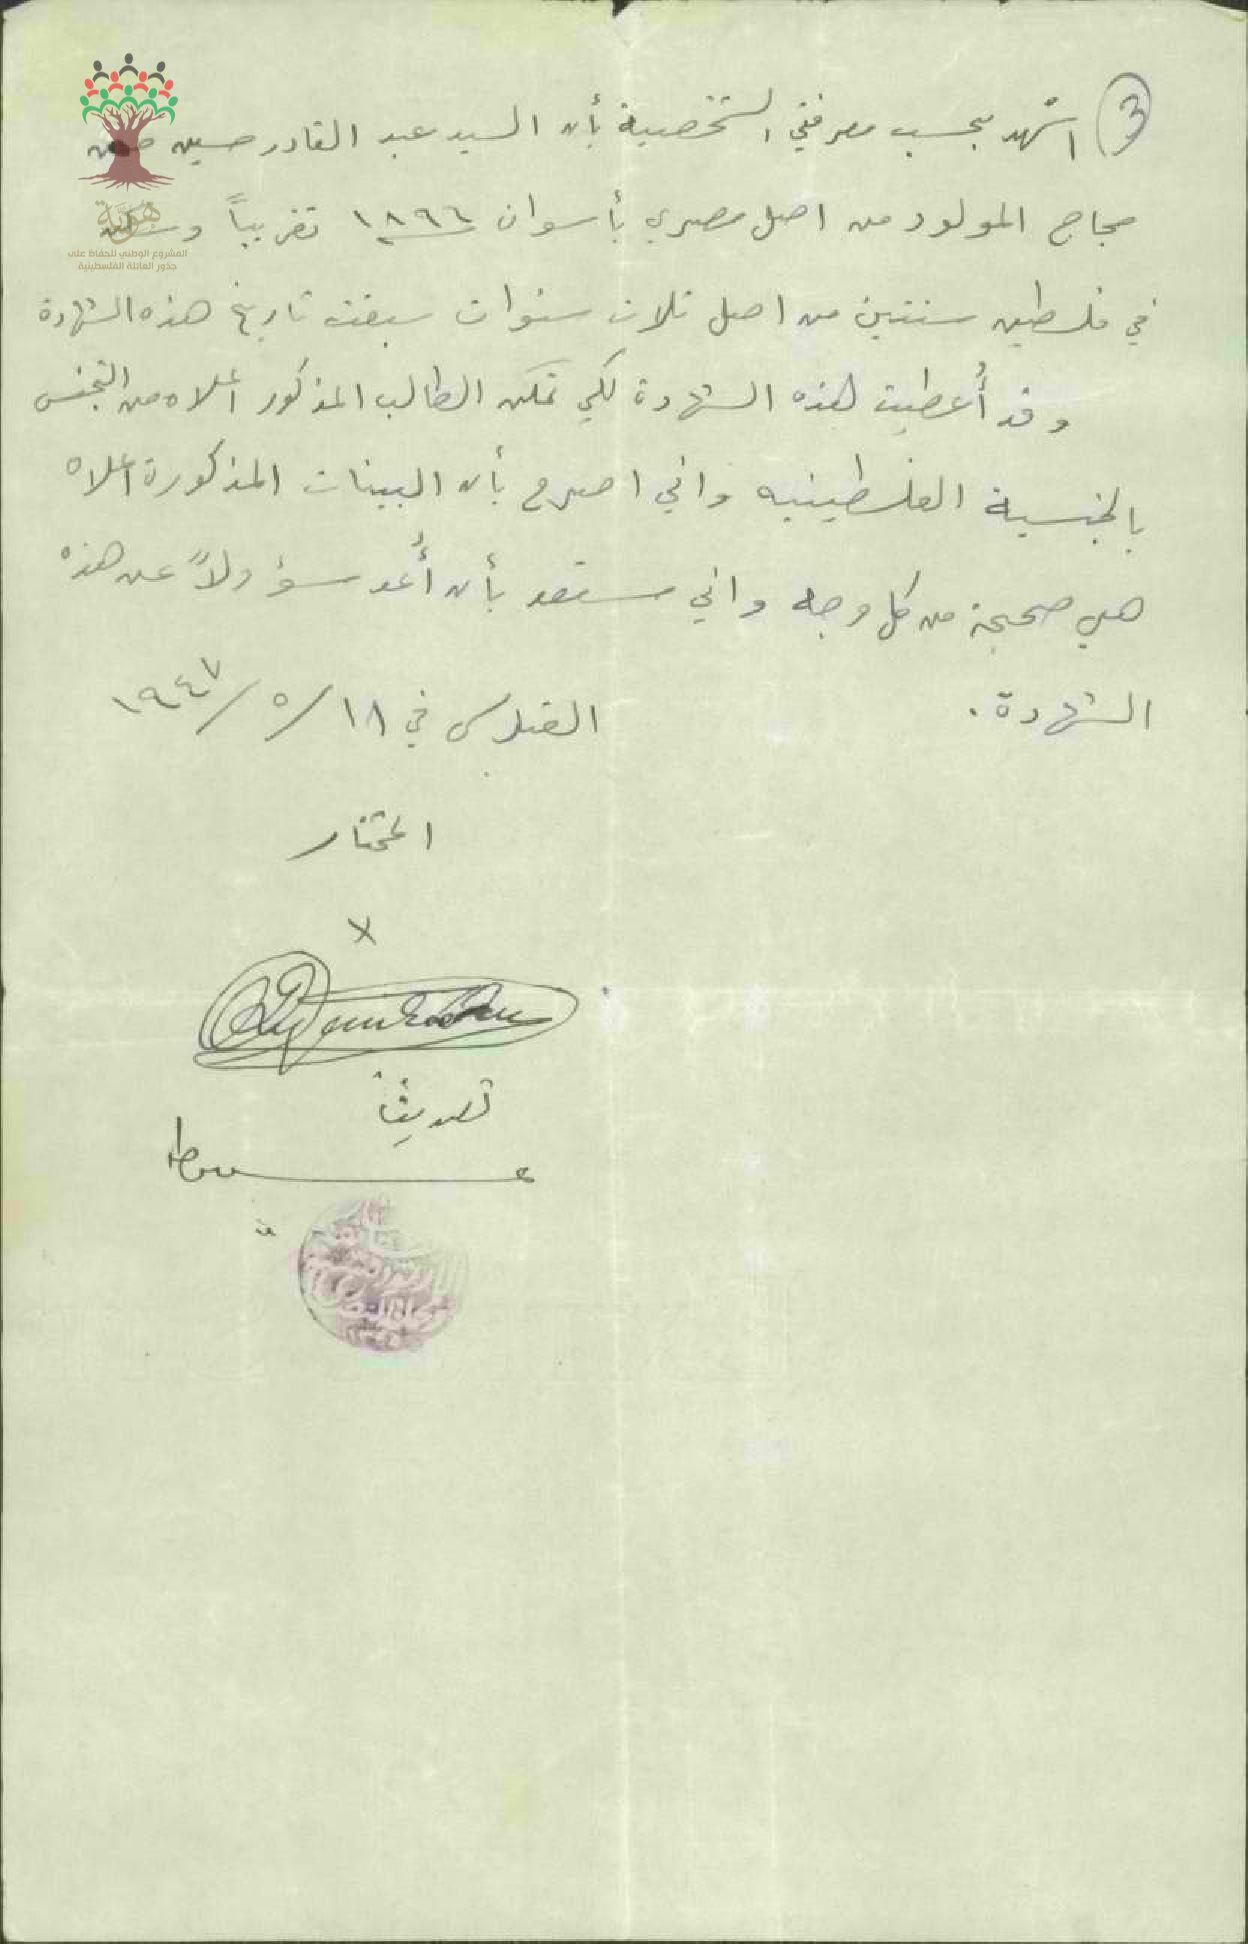 3
اشهد بحسب معرفتي الشخصية بأن السيد عبد القادر حسين
حجاج المولود من اصل مصري بأسوان ١٨٩٦ تقريباً وسكن
في فلسطين سنتين من اصل ثلاث سنوات سبقت تاريخ هذه الشهادة
وقد أُعطيت هذه الشهادة لكي تمكن الطالب المذكور اعلاه من التجنس
بالجنسية الفلسطينيه واني اصرح بأن البينات المذكورة اعلاه
هي صحيحة من كل وجه واني مستعد بأن أُعد مسؤولاً عن هذه
الشهادة. القدس في ١٨/٥/١٩٤٧
المختار
x
تصديقاً
هوية
المشروع الوطني للحفاظ على
جذور العائلة الفلسطينية